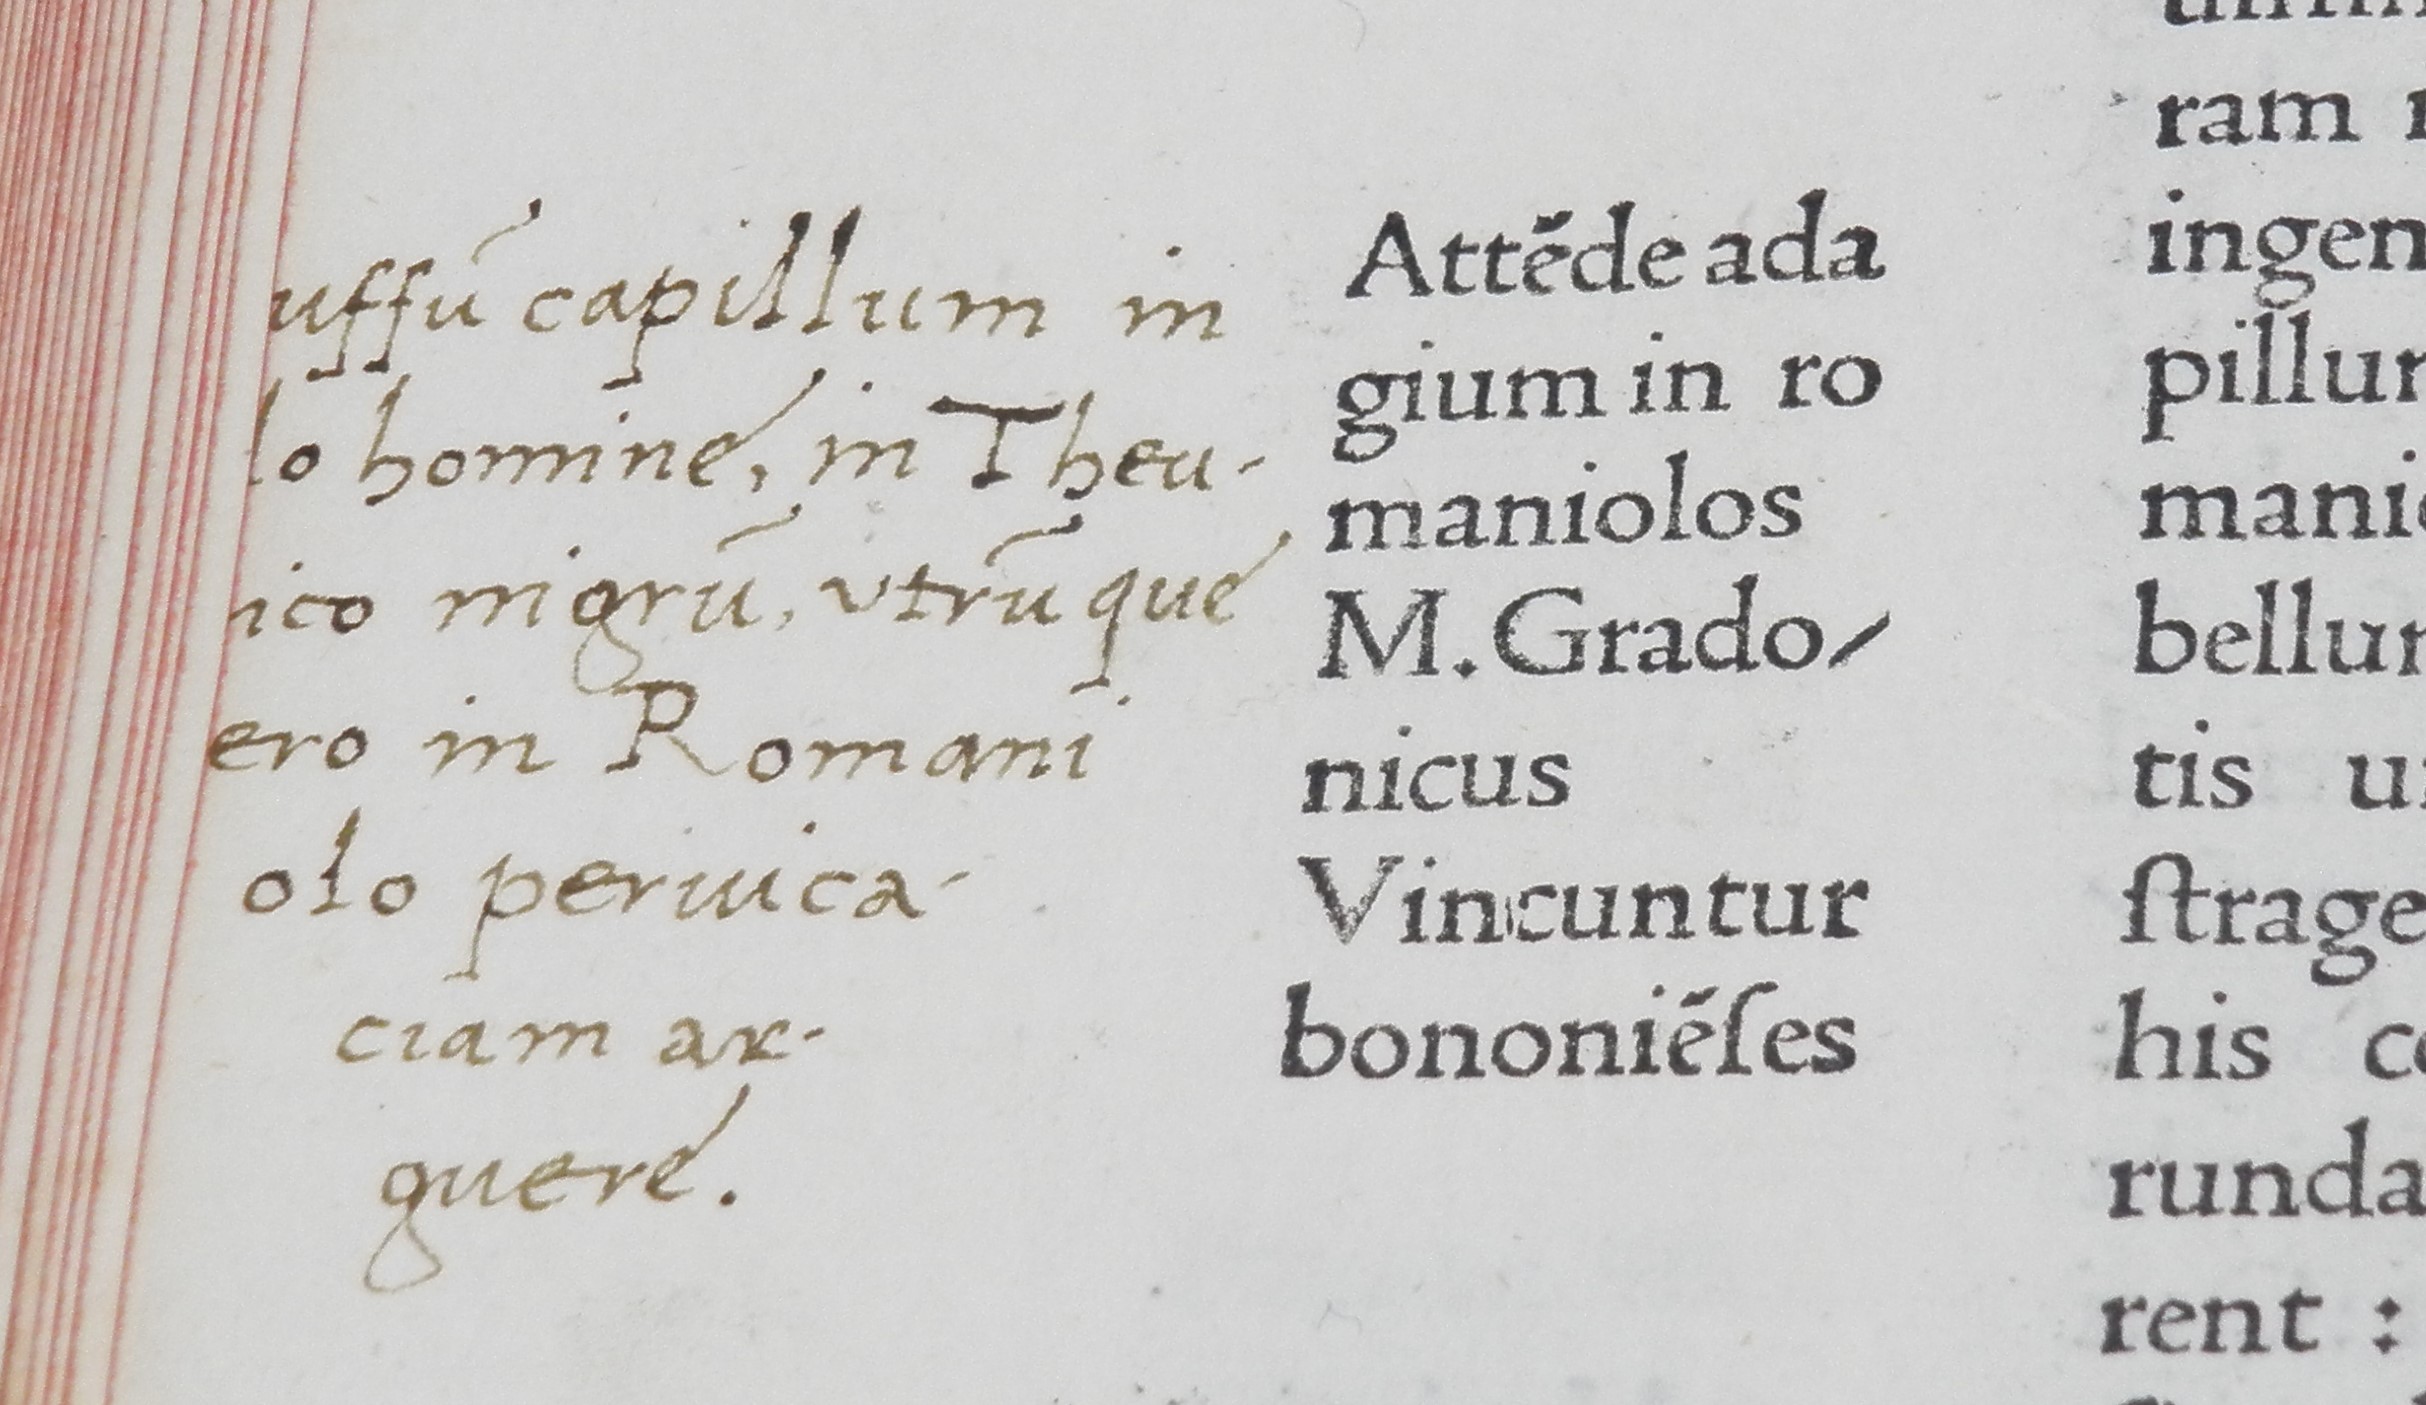 uffū capillum in
lo homine, in Theu-
ico nigrū, vtrūque
ero in Romani
olo peruica-
ciam ar-
guere.
Attēde ada
gium in ro
maniolos
M. Grado/
nicus
Vincuntur
bononiēſes
ram
ingen
pillur
manio
bellur
tis
ſtrage
his
runda
rent :